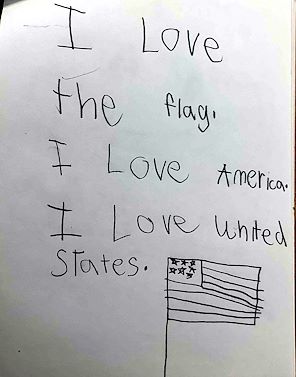 I Love
the flag.
I Love America.
I Love United
States.